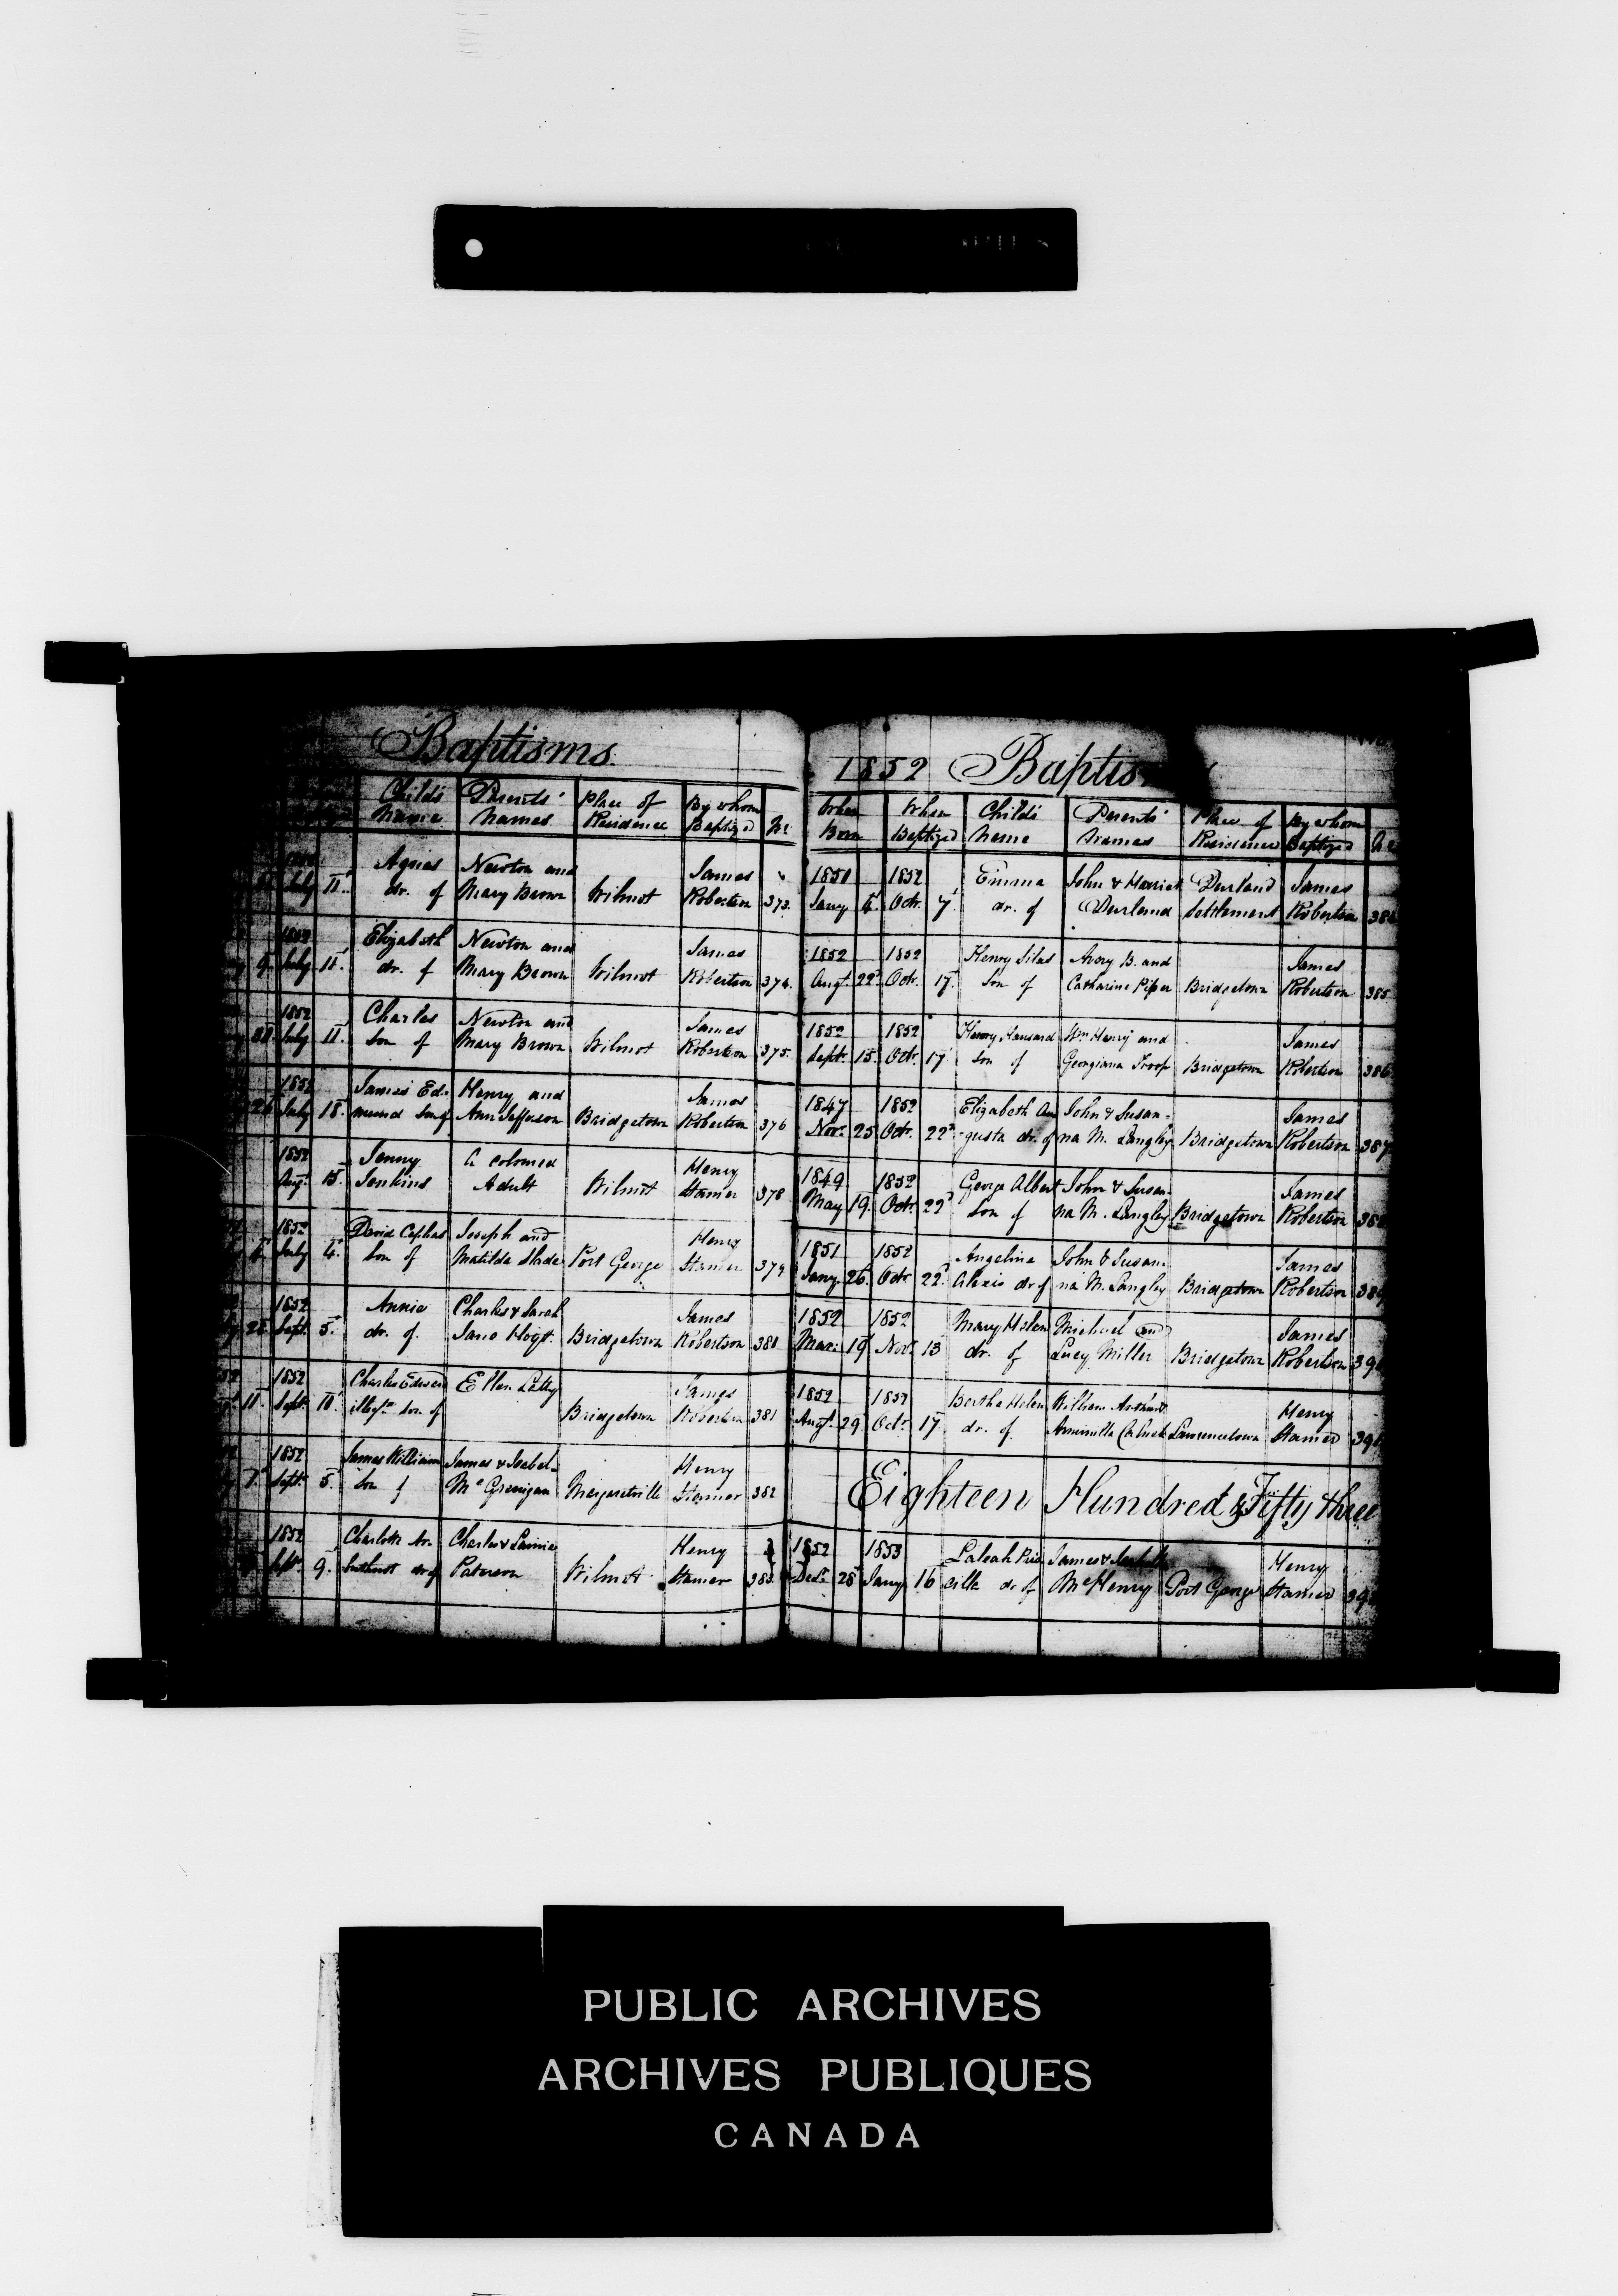 Baptisms.
Child's Name Parents' Names Place of Residence By whom Baptized No.
July 11. Agnes dr. of Newton and Mary Brown Wilmot James Robertson 373.
9. July 11. Elizabeth dr. of Newton and Mary Brown Wilmot James Robertson 374.
1852 July 11. Charles Son of Newton and Mary Brown Wilmot James Robertson 375.
1852 July 18. James Ed- mund Son of Henry and Ann Jefferson Bridgetown James Robertson 376
1852 Aug. 15. Jenny Jenkins A coloured Adult Wilmot Henry Stamer 378
1852 July 4. David Cephas Son of Joseph and Matilda Slade Port George Henry Stamer 379
1852 Sept. 5. Annie dr. of Charles & Sarah Jane Hoyt. Bridgetown James Robertson 380
11. 1852 Sept. Charles Edwin Ellen Bridgetown James Robertson 381
7. 1852 Sept. 5. James William Son of James & Isabel- Margaretville Henry Stamer 382
1852 Sept. 9. Charlotte dr of Charles & Paterson Wilmot Henry Stamer 383.
1852 Baptis
When Born When Baptized Child's Name Parents' Names Place of Residence By whom Baptized
Jany 1852 Octr. 7. Emma dr. of John & Harriet Durland Durland Settlement James Robertson
1852 Augt. 22d 1852 Octr. 17. Henry Silas Son of Avory B. and Catharine Piper Bridgetown James Robertson 385
1852 Septr. 15. 1852 Octr. 17. Henry Son of Wm Henry and Georgiana Troop Bridgetown James Robertson 386
1847 Novr. 25 1852 Octr. 22d Elizabeth Au- gusta dr. of John & Susan- na M. Langley Bridgetown James Robertson 387
1849 May 19. 1852 Octr. 22d George Albert Son of John & Susan- na M. Langley Bridgetown James Robertson
1851 Jany 26. 1852 Octr. 22d Angelina Alexis dr of John & Susan- na M. Langley Bridgetown James Robertson
1852 Mar: 19 1852 Novr. 13 Mary Helen dr. of Michael and Lucy Miller Bridgetown James Robertson
1852 Augt. 29 1852 Octr. 17. Bertha Helen dr. of William Arthur & Lawrencetown Henry Stamer
Eighteen Hundred & Fifty three
1852 Decr. 28 1853 Jany 16 Pris- cilla dr of James & McHenry Port George Henry Stamer
PUBLIC ARCHIVES
ARCHIVES PUBLIQUES
CANADA